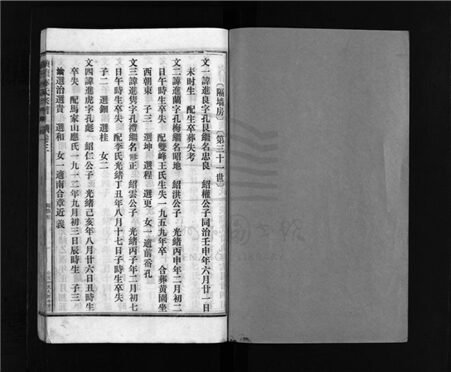 （隔墙房）（第三十一世）
文一諱進良字孔艮繼名忠良 紹權公子同治壬申年六月廿一日
未时生 配生卒葬失考
文二諱進蘭字孔梅繼名昭地 紹洪公子 光绪丙申年二月初二
日午時生卒失 配雙峰王氏生失一九五九年卒 合葬黃園坐
酉朝東 子三 選坤 選程 選更 女一適前番孔
文三諱進隽字孔 繼名 正 紹雲公子 光绪丙子年二月初七
日午時生卒失 配李氏光绪丁丑年八月十七日子時生卒失
子二 選鈿 選桂 女二
文四諱進虎字孔彪 紹仁公子 光绪己亥年八月廿六日丑時生
卒失 配馬家山應氏一九一二年九月初三日辰時生 子三
選治選貴 選和 女一適南合章近義